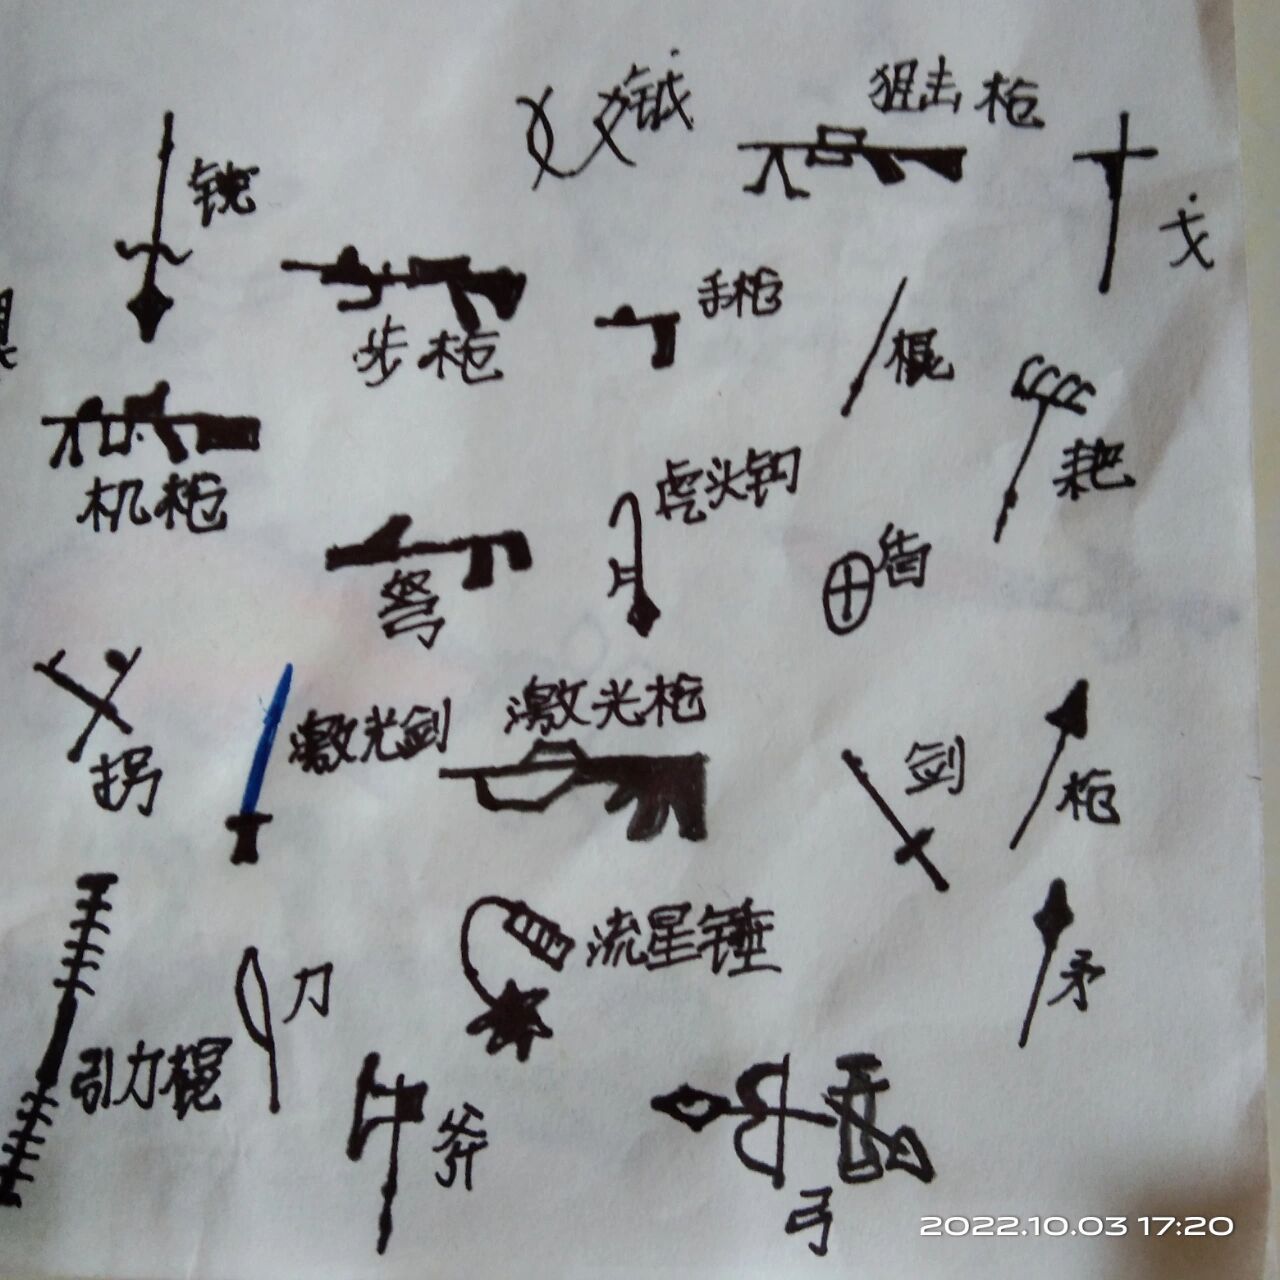 钺
狙击枪
镋
戈
手枪
步枪
棍
耙
虎头钩
机枪
盾
弩
激光枪
激光剑
剑
拐
枪
流星锤
矛
刀
引力棍
斧
弓
2022.10.03 17:20